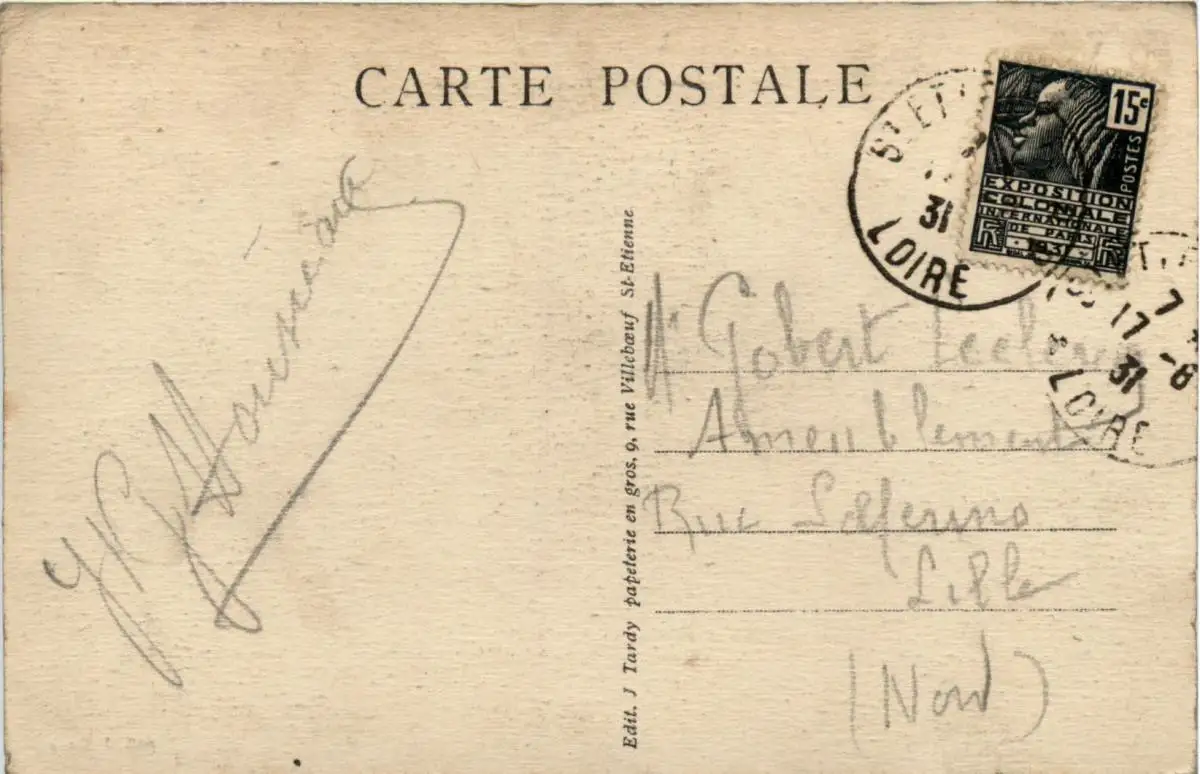 CARTE POSTALE
15c
POSTES
EXPOSITION
COLONIALE
INTERNATIONALE
DE PARIS
1931
St ET
31
LOIRE
17
7
-6
31
LOIRE
Edit. J Tardy papeterie en gros, 9, rue Villebœuf St-Etienne
Mr Gobert Leclercq
Ameublement
Rue Solferino
Lille
(Nord)